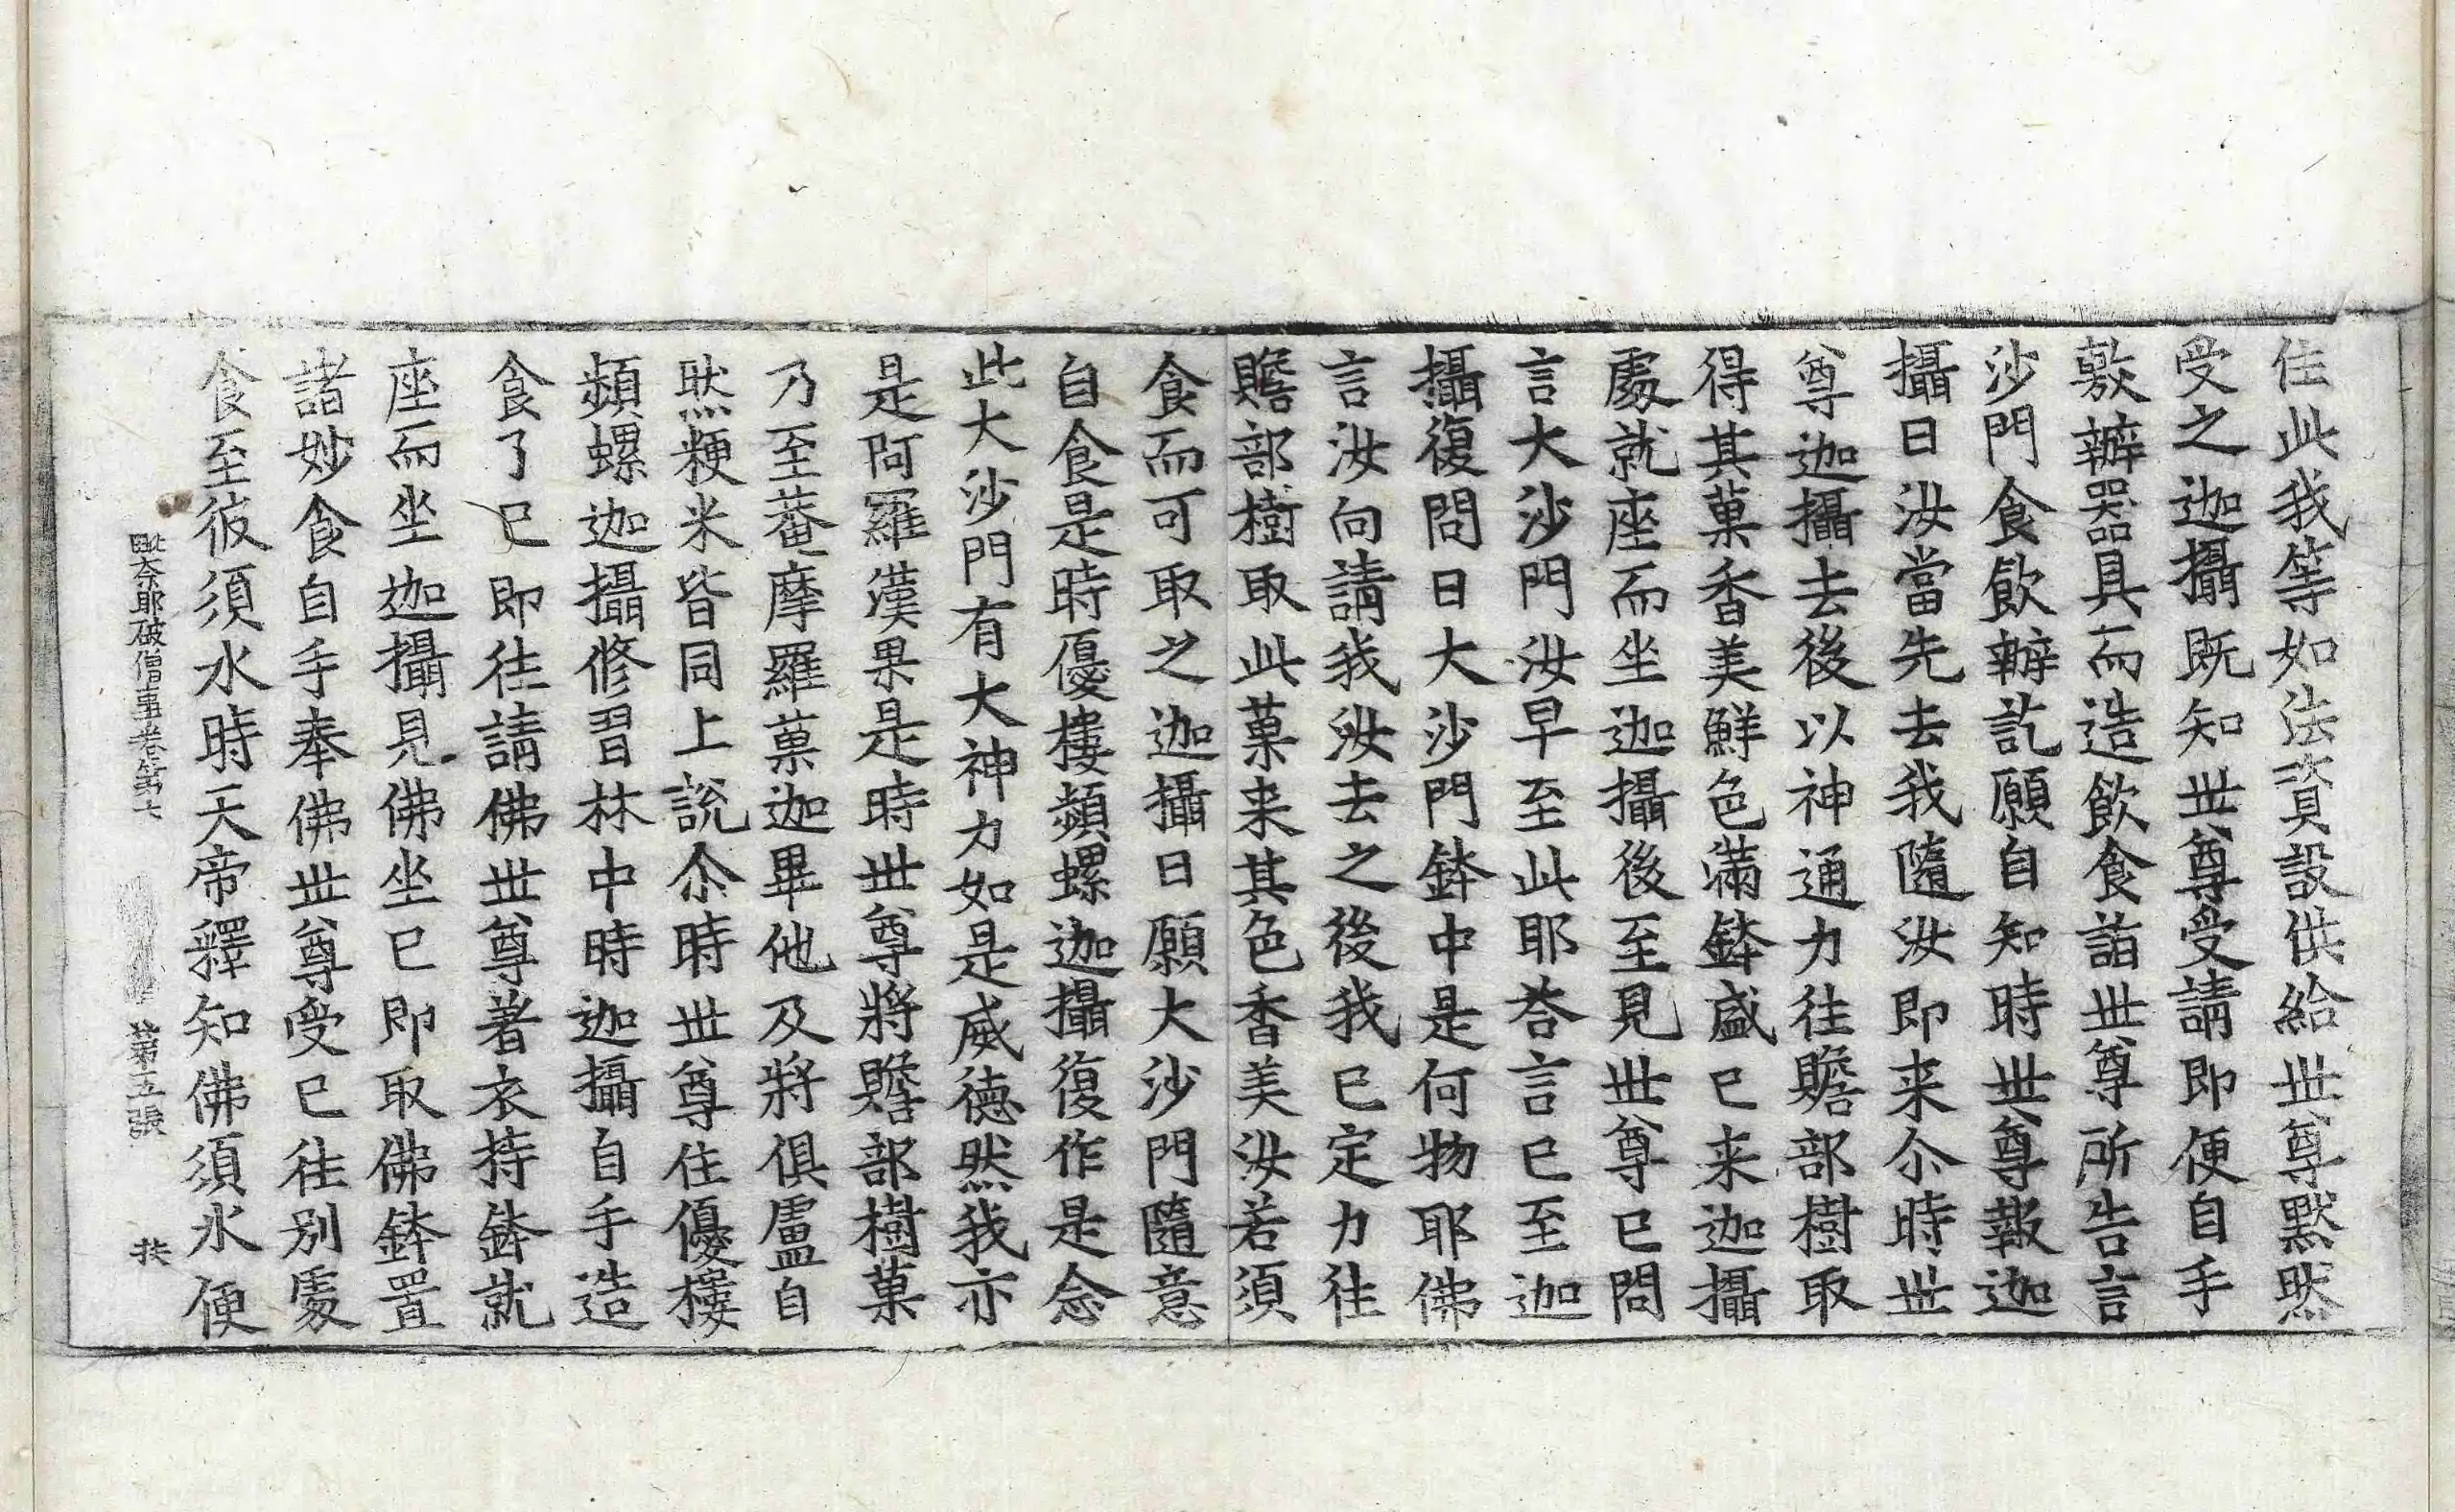 住此我等如法資設供給世尊默然
受之迦攝既知世尊受請即便自手
敷辦器具而造飲食詣世尊所告言
沙門食飲辦訖願自知時世尊報迦
攝曰汝當先去我隨汝即来尒時世
尊迦攝去後以神通力往贍部樹取
得其菓香美鮮色滿鉢盛已来迦攝
處就座而坐迦攝後至見世尊已問
言大沙門汝早至此耶荅言已至迦
攝復問曰大沙門鉢中是何物耶佛
言汝向請我汝去之後我已定力往
贍部樹取此菓来其色香美汝若須
食而可取之迦攝曰願大沙門隨意
自食是時優樓頻螺迦攝復作是念
此大沙門有大神力如是威德然我亦
是阿羅漢果是時世尊將贍部樹菓
乃至菴摩羅菓迦畢他及將俱盧自
然粳米皆同上說尒時世尊住優樓
頻螺迦攝修習林中時迦攝自手造
食了已即往請佛世尊著衣持鉢就
座而坐迦攝見佛坐已即取佛鉢置
諸妙食自手奉佛世尊受已往別處
食至彼須水時天帝釋知佛須水便
毗奈耶破僧事卷第七 第五張 扶